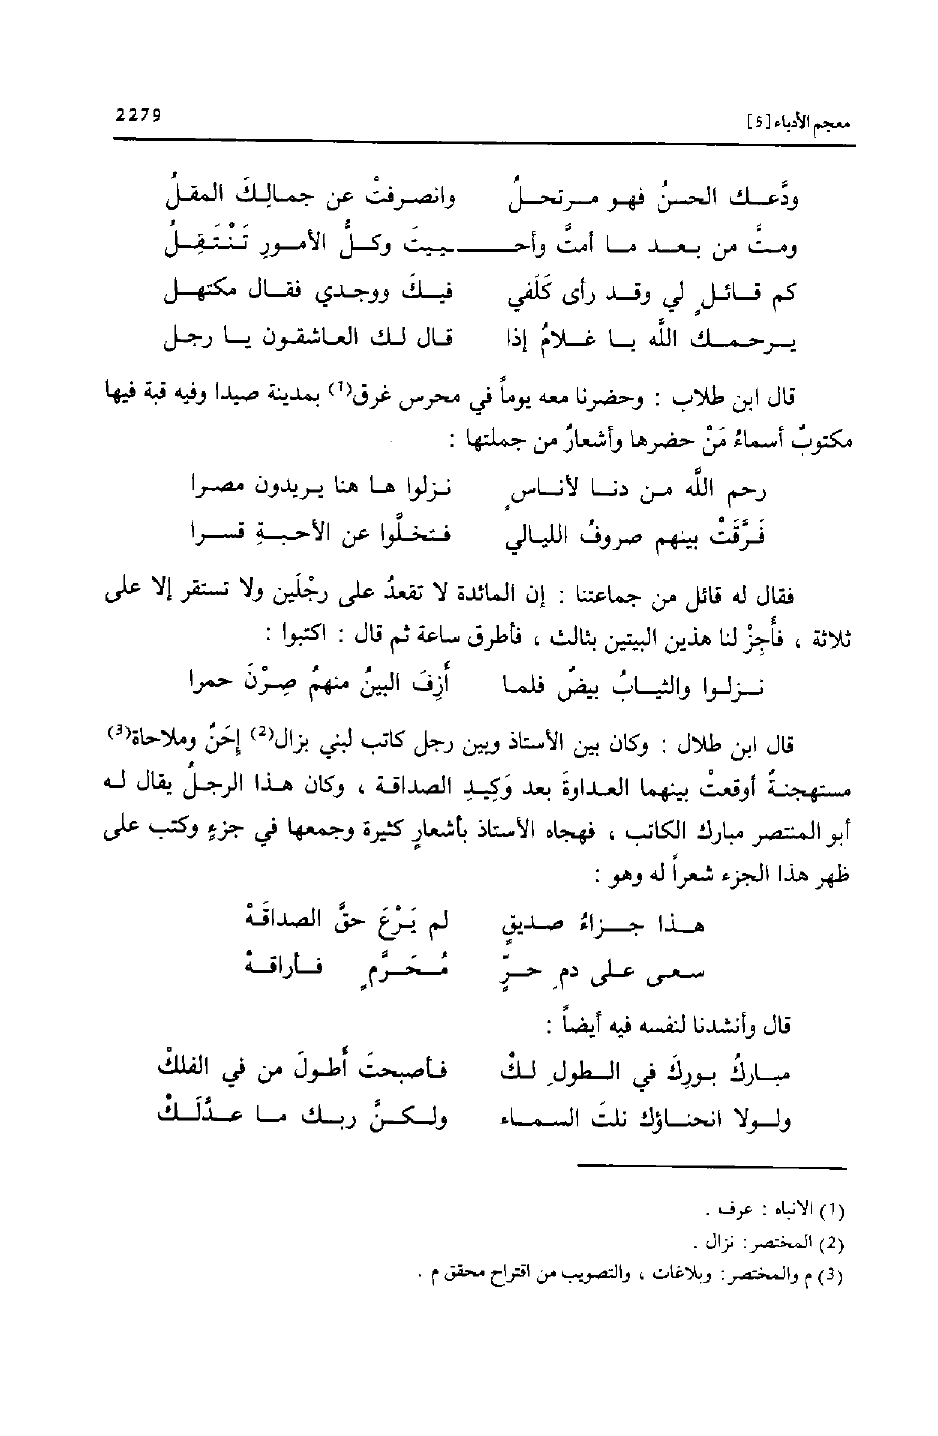 معجم الأدباء [5] 2279
ودَّعك الحسنُ فهو مرتحلُ وانصرفتْ عن جمالِكَ المقلُ
ومتَّ من بعد ما أمتَّ وأحييتَ وكلُّ الأمورِ تَنْتَقِلُ
كم قائلٍ لي وقد رأى كَلَفي فيكَ ووجدي فقال مكتهل
يرحمك اللَّه يا غلامُ إذا قال لك العاشقون يا رجل
قال ابن طلاب : وحضرنا معه يوماً في محرس غرق(1) بمدينة صيدا وفيه قبة فيها
مكتوبٌ أسماءُ مَنْ حضرها وأشعارٌ من جملتها :
رحم اللَّه من دنا لأناسٍ نزلوا ها هنا يريدون مصرا
فَرَّقَتْ بينهم صروفُ الليالي فتخلَّوا عن الأحبةِ قسرا
فقال له قائل من جماعتنا : إن المائدة لا تقعدُ على رجْلَين ولا تستقر إلا على
ثلاثة ، فأَجِزْ لنا هذين البيتين بثالث ، فأطرق ساعة ثم قال : اكتبوا :
نزلوا والثيابُ بيضٌ فلما أَزِفَ البينُ منهمُ صِرْنَ حمرا
قال ابن طلال : وكان بين الأستاذ وبين رجل كاتب لبني بزال(2) إحَنٌ وملاحاة(3)
مستهجنةٌ أوقعتْ بينهما العداوةَ بعد وَكِيدِ الصداقة ، وكان هذا الرجلُ يقال له
أبو المنتصر مبارك الكاتب ، فهجاه الأستاذ بأشعارٍ كثيرة وجمعها في جزءٍ وكتب على
ظهر هذا الجزء شعراً له وهو :
هذا جزاءُ صديقٍ لم يَرْعَ حقَّ الصداقَهْ
سعى على دمِ حرٍّ مُحَرَّمٍ فأراقهْ
قال وأنشدنا لنفسه فيه أيضاً :
مباركُ بورِكَ في الطولِ لكْ فأصبحتَ أطولَ من في الفلكْ
ولولا انحناؤك نلتَ السماء ولكنَّ ربك ما عدَّلَكْ
(1) الانباه : عرف .
(2) المختصر: نزال .
(3) م والمختصر: وبلاغات ، والتصويب من اقتراح محقق م .